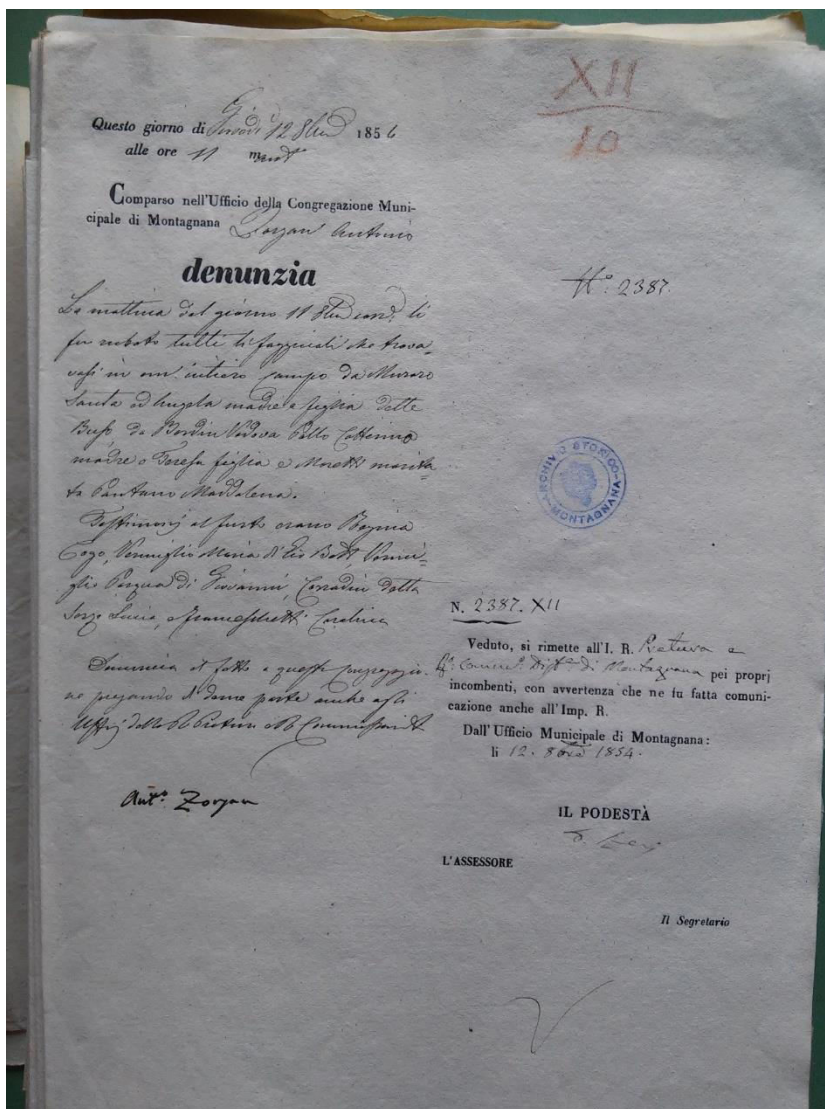 XII
10
Questo giorno di Giovedì 12 8bre 1854
alle ore 11 mattª
Comparso nell'Ufficio della Congregazione Muni-
cipale di Montagnana Zorzan Antonio
denunzia
La mattina del giorno 11 8bre corrᵉ. li
fu rubato tutti li faggiuoli che trova-
vasi in un' intiero campo da Muraro
Santa ed Angela madre e figlia dette
da Bordin Vedova Catterina
madre e Teresa figlia e Moretti marita-
ta Pantano Maddalena.
Testimonj al furto erano Regina
Gogo, Vermiglio Maria di Gio Battª, Vermi-
glio Pasqua di Giovanni, Corradin detta
Lucia, e Franceschetti
Denuncia il fatto a questa Congregazio-
ne pregando di darne parte anche agli
Uffizj della R. Pretura e R. Commissariat
Antº. Zorzan
Nº. 2387.
ARCHIVIO STORICO
MONTAGNANA
N. 2387. XII
Veduto, si rimette all'I. R. Pretura e
Rº. Commissº. Distˡᵉ. di Montagnana pei proprj
incombenti, con avvertenza che ne fu fatta comuni-
cazione anche all'Imp. R.
Dall'Ufficio Municipale di Montagnana:
li 12. 8bre 1854.
IL PODESTÀ
L'ASSESSORE
Il Segretario